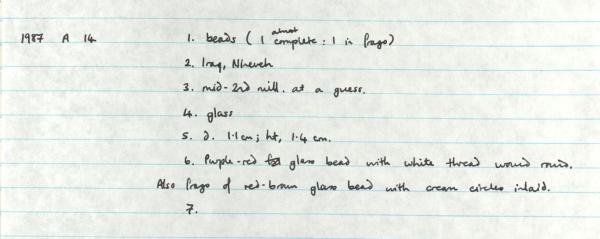 1987 A 14 1. beads (1 almost complete : 1 in frags)
2. Iraq, Nineveh
3. mid-2nd mill. at a guess.
4. glass
5. d. 1.1cm; ht, 1.4 cm.
6. Purple-red glass bead with white thread wound round.
Also frags of red-brown glass bead with cream circles inlaid.
7.